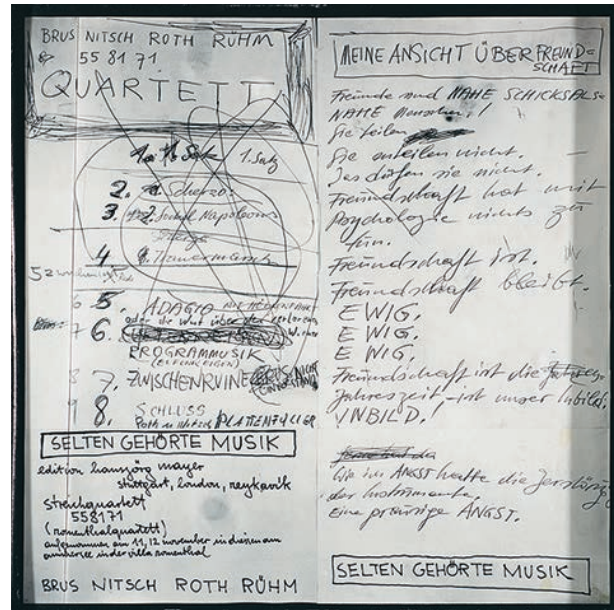 BRUS NITSCH ROTH RÜHM
558171
QUARTETT
1. Satz 1. Satz
2. Scherzo
3. Napoleons
4. Trauermarsch
5
6 5. ADAGIO
7 6. oder die Wut über den verlorenen
PROGRAMMUSIK
8 7. ZWISCHENRUINE
9 8. SCHLUSS
Roth PLATTENFÜLLER
SELTEN GEHÖRTE MUSIK
edition hansjörg mayer
stuttgart, london, reykjavik
streichquartett
558171
(romenthalquartett)
aufgenommen am 11, 12 november in diessen am
ammersee in der villa romenthal
BRUS NITSCH ROTH RÜHM
MEINE ANSICHT ÜBER FREUND=
SCHAFT
Freunde sind NAHE SCHICKSALS=
NAHE Menschen!
Sie teilen
Sie urteilen nicht.
Das dürfen sie nicht.
Freundschaft hat mit
Psychologie nichts zu
tun.
Freundschaft ist.
Freundschaft bleibt.
EWIG.
EWIG.
EWIG.
Freundschaft ist die
Jahreszeit – ist unser Urbild!
UNBILD!
Wie im ANGST hatte die
der Instrumente.
Eine ANGST.
SELTEN GEHÖRTE MUSIK